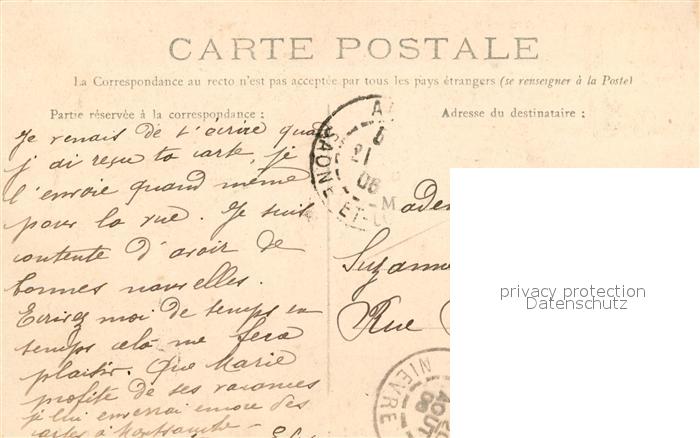 CARTE POSTALE
La Correspondance au recto n'est pas acceptée par tous les pays étrangers (se renseigner à la Poste)
Partie réservée à la correspondance :
Adresse du destinataire :
Je venais de t'écrire quand
j'ai reçu ta carte, je
l'envoie quand même
pour la vue. Je suis
contente d'avoir de
bonnes nouvelles.
Ecrivez moi de temps en
temps cela me fera
plaisir. Que Marie
profite de ses vacances
je lui enverrai encore des
cartes à
Suzanne
Rue
SAONE
ET-L
21
06
NIEVRE
AOUT
06
privacy protection
Datenschutz